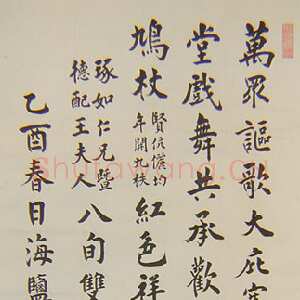 萬眾謳歌大庇寒
堂戲舞共承歡
鳩杖賢伉儷均年開九秩紅色祥
琢如仁兄暨
德配王夫人八旬雙
乙酉春日海鹽
Shufawang.cn